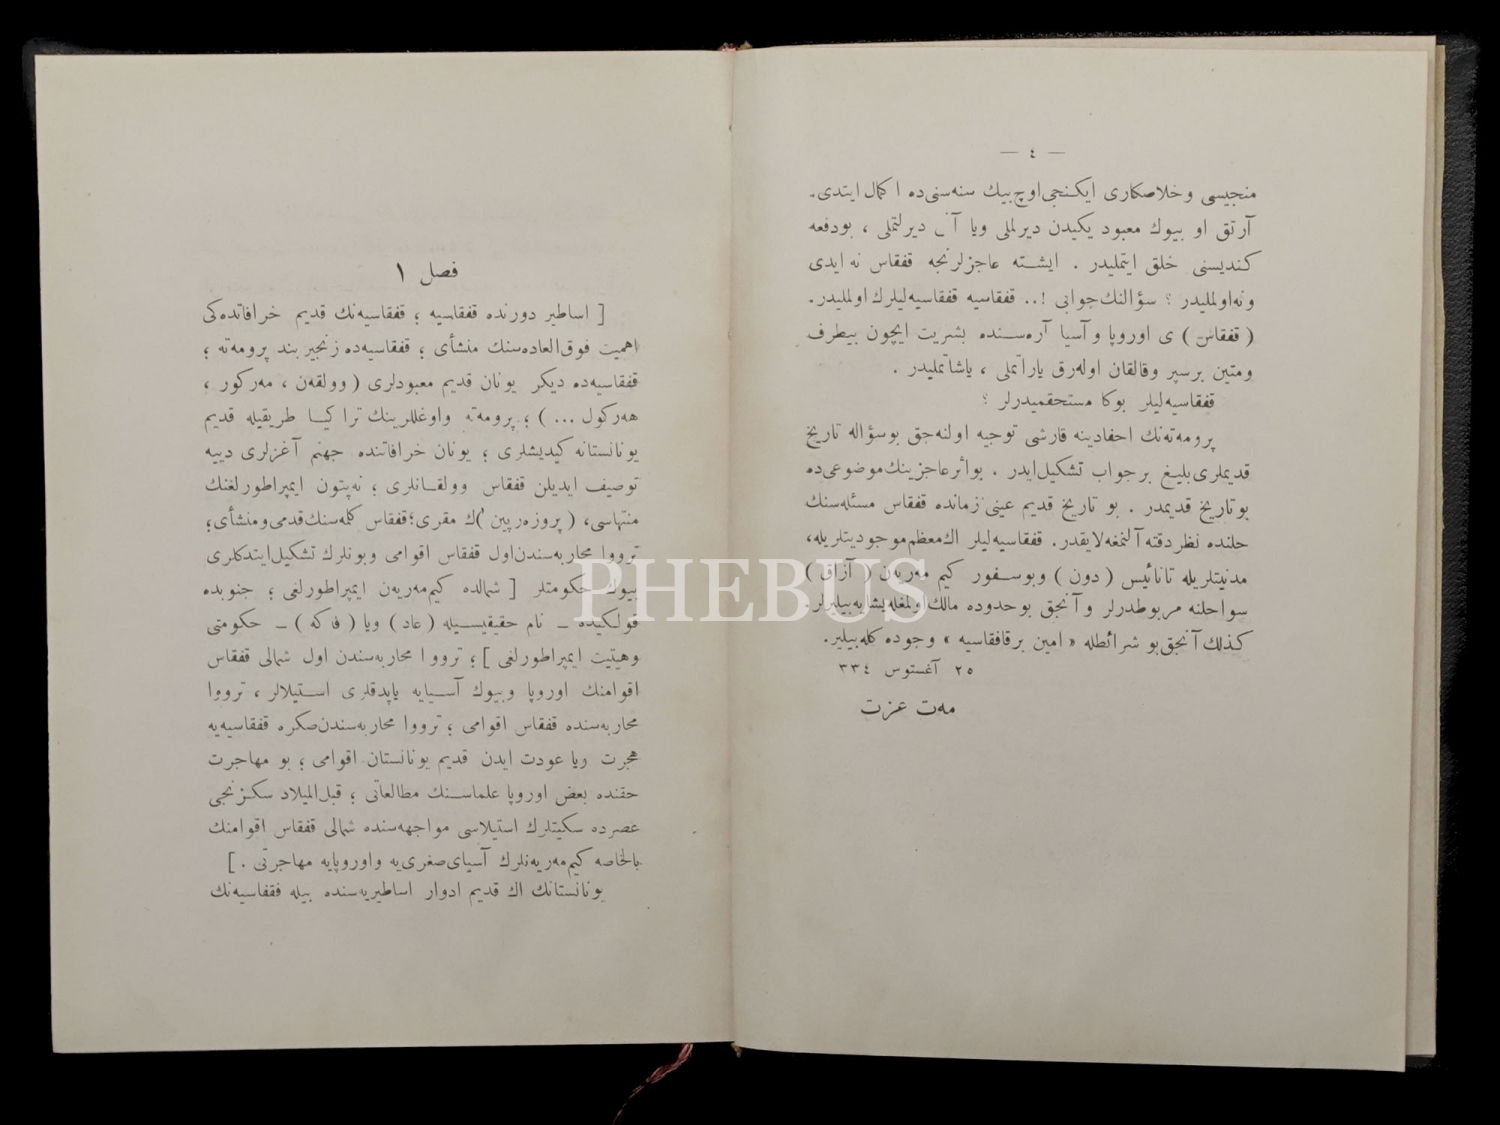 — ٤ —
منجیسی و خلاصكاری ایكنجی اوچ بیك سنه سنی ده اكمال ایتدی.
آرتق او بیوك معبود یكیدن دیرلملی ویا آنی دیرلتملی ، بودفعه
كندیسنی خلق ایتملیدر . ایشته عاجزلرنجه قفقاس نه ایدی
ونه اولملیدر ؟ سؤالنك جوابی !.. قفقاسیه قفقاسیه لیلرك اولملیدر.
( قفقاس ) ی اوروپا و آسیا آره سنده بشریت ایچون بیطرف
ومتین برسپر وقالقان اوله رق یاراتملی ، یاشاتملیدر .
قفقاسیه لیلر بوكا مستحقمیدرلر ؟
پرومه ته نك احفادینه قارشی توجیه اولنه جق بوسؤاله تاریخ
قدیملری بلیغ برجواب تشكیل ایدر . بواثر عاجزینك موضوعی ده
بوتاریخ قدیمدر . بو تاریخ قدیم عینی زمانده قفقاس مسئله سنك
حلنده نظر دقته آلنمغه لایقدر. قفقاسیه لیلر اك معظم موجودیتلریله،
مدنیتلریله تانائیس ( دون ) وبوسفور كیم مه ریه ن ( آزاق )
سواحلنه مربوطدرلر و آنجق بوحدوده مالك اولمغله یشایه بیلیرلر.
كذلك آنجق بو شرائطله « امین برقافقاسیه » وجوده كله بیلیر.
٢٥ آغستوس ٣٣٤
مه ت عزت
فصل ١
[ اساطیر دورنده قفقاسیه ؛ قفقاسیه نك قدیم خرافاتده كی
اهمیت فوق العاده سنك منشأی ؛ قفقاسیه ده زنجیر بند پرومه ته ؛
قفقاسیه ده دیكر یونان قدیم معبودلری ( وولقه ن ، مه ركور ،
هه ركول ... ) ؛ پرومه ته واوغللرینك تراكیا طریقیله قدیم
یونانستانه كیدیشلری ؛ یونان خرافاتنده جهنم آغزلری دییه
توصیف ایدیلن قفقاس وولقانلری ؛ نه پتون ایمپراطورلغنك
منتهاسی، ( پروزه رپین ) ك مقری؛ قفقاس كله سنك قدمی ومنشأی؛
ترووا محاربه سندن اول قفقاس اقوامی و بونلرك تشكیل ایتدكلری
بیوك حكومتلر [ شمالده كیم مه ریه ن ایمپراطورلغی ؛ جنوبده
قولكیده – نام حقیقیسیله ( عاد ) ویا ( فاكه ) – حكومتی
وهیتیت ایمپراطورلغی ] ؛ ترووا محاربه سندن اول شمالی قفقاس
اقوامنك اوروپا وبیوك آسیایه یاپدقلری استیلالر ، ترووا
محاربه سنده قفقاس اقوامی ؛ ترووا محاربه سندن صكره قفقاسیه یه
هجرت ویا عودت ایدن قدیم یونانستان اقوامی ؛ بو مهاجرت
حقنده بعض اوروپا علماسنك مطالعاتی ؛ قبل المیلاد سكزنجی
عصرده سكیتلرك استیلاسی مواجهه سنده شمالی قفقاس اقوامنك
بالخاصه كیم مه ریه نلرك آسیای صغری یه و اوروپایه مهاجرتی . ]
یونانستانك اك قدیم ادوار اساطیریه سنده بیله قفقاسیه نك
PHEBUS